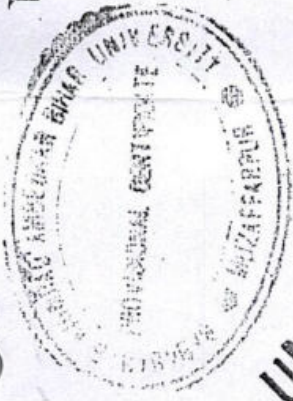 AMBEDKAR BIHAR UNIVERSITY
MUZAFFARPUR
PROVISIONAL CERTIFICATE